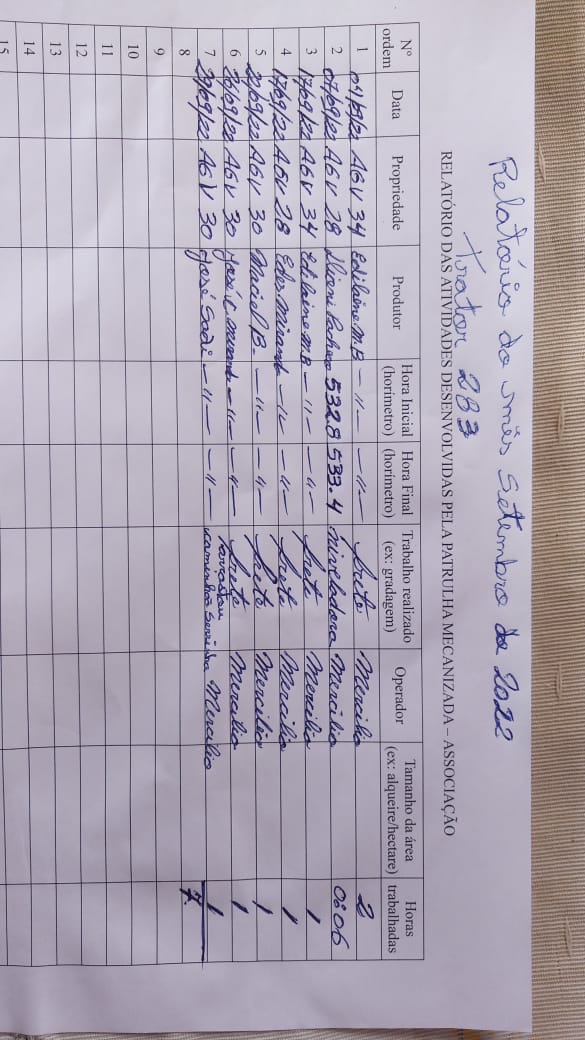 Relatório do mês Setembro de 2022
Trator 283
RELATÓRIO DAS ATIVIDADES DESENVOLVIDAS PELA PATRULHA MECANIZADA – ASSOCIAÇÃO
Nº ordem Data Propriedade Produtor Hora Inicial (horímetro) Hora Final (horímetro) Trabalho realizado (ex: gradagem) Operador Tamanho da área (ex: alqueire/hectare) Horas trabalhadas
1 AGV 34 Edilaine M.B — 11 — — 11 — frete 2
2 07/09/22 AGV 28 5328 533.4 niveladora Mercilio 0:06
3 17/09/22 AGV 34 Edilaine M.B — 11 — — 11 — frete Mercilio 1
4 17/09/22 AGV 28 Eder Miranda — 11 — — 11 — frete Mercilio 1
5 22/09/22 AGV 30 Maciel B. — 11 — — 11 — frete Mercilio 1
6 26/09/22 AGV 30 José C. — 11 — — 11 — frete Mercilio 1
7 AGV 30 José Sadi — 11 — — 11 — Mercilio 1
8 7.
9
10
11
12
13
14
15